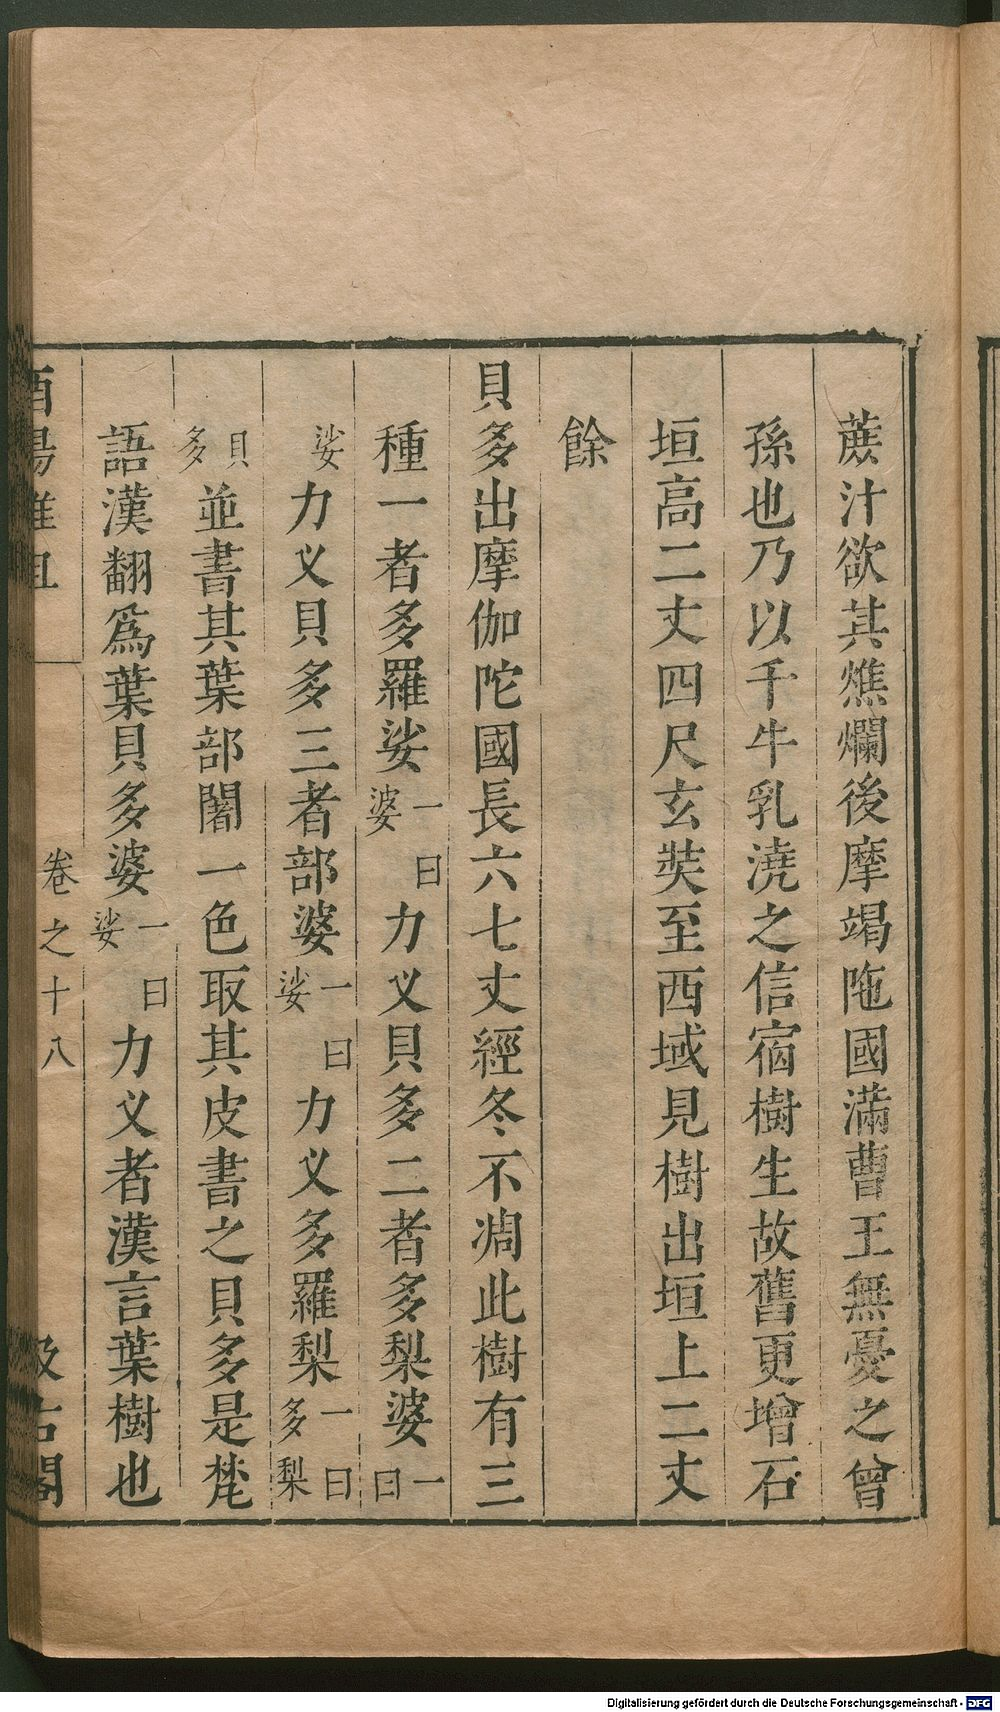 蔗汁欲其燋爛後摩竭陁國滿曹王無憂之曾
孫也乃以千牛乳澆之信宿樹生故舊更增石
垣高二丈四尺玄奘至西域見樹出垣上二丈
餘
貝多出摩伽陀國長六七丈經冬不凋此樹有三
種一者多羅娑一曰婆力义貝多二者多梨婆一曰
娑力义貝多三者部婆一曰娑力义多羅梨一曰多梨
貝多並書其葉部闍一色取其皮書之貝多是梵
語漢翻爲葉貝多婆一曰娑力义者漢言葉樹也
卷之十八
Digitalisierung gefördert durch die Deutsche Forschungsgemeinschaft - DFG